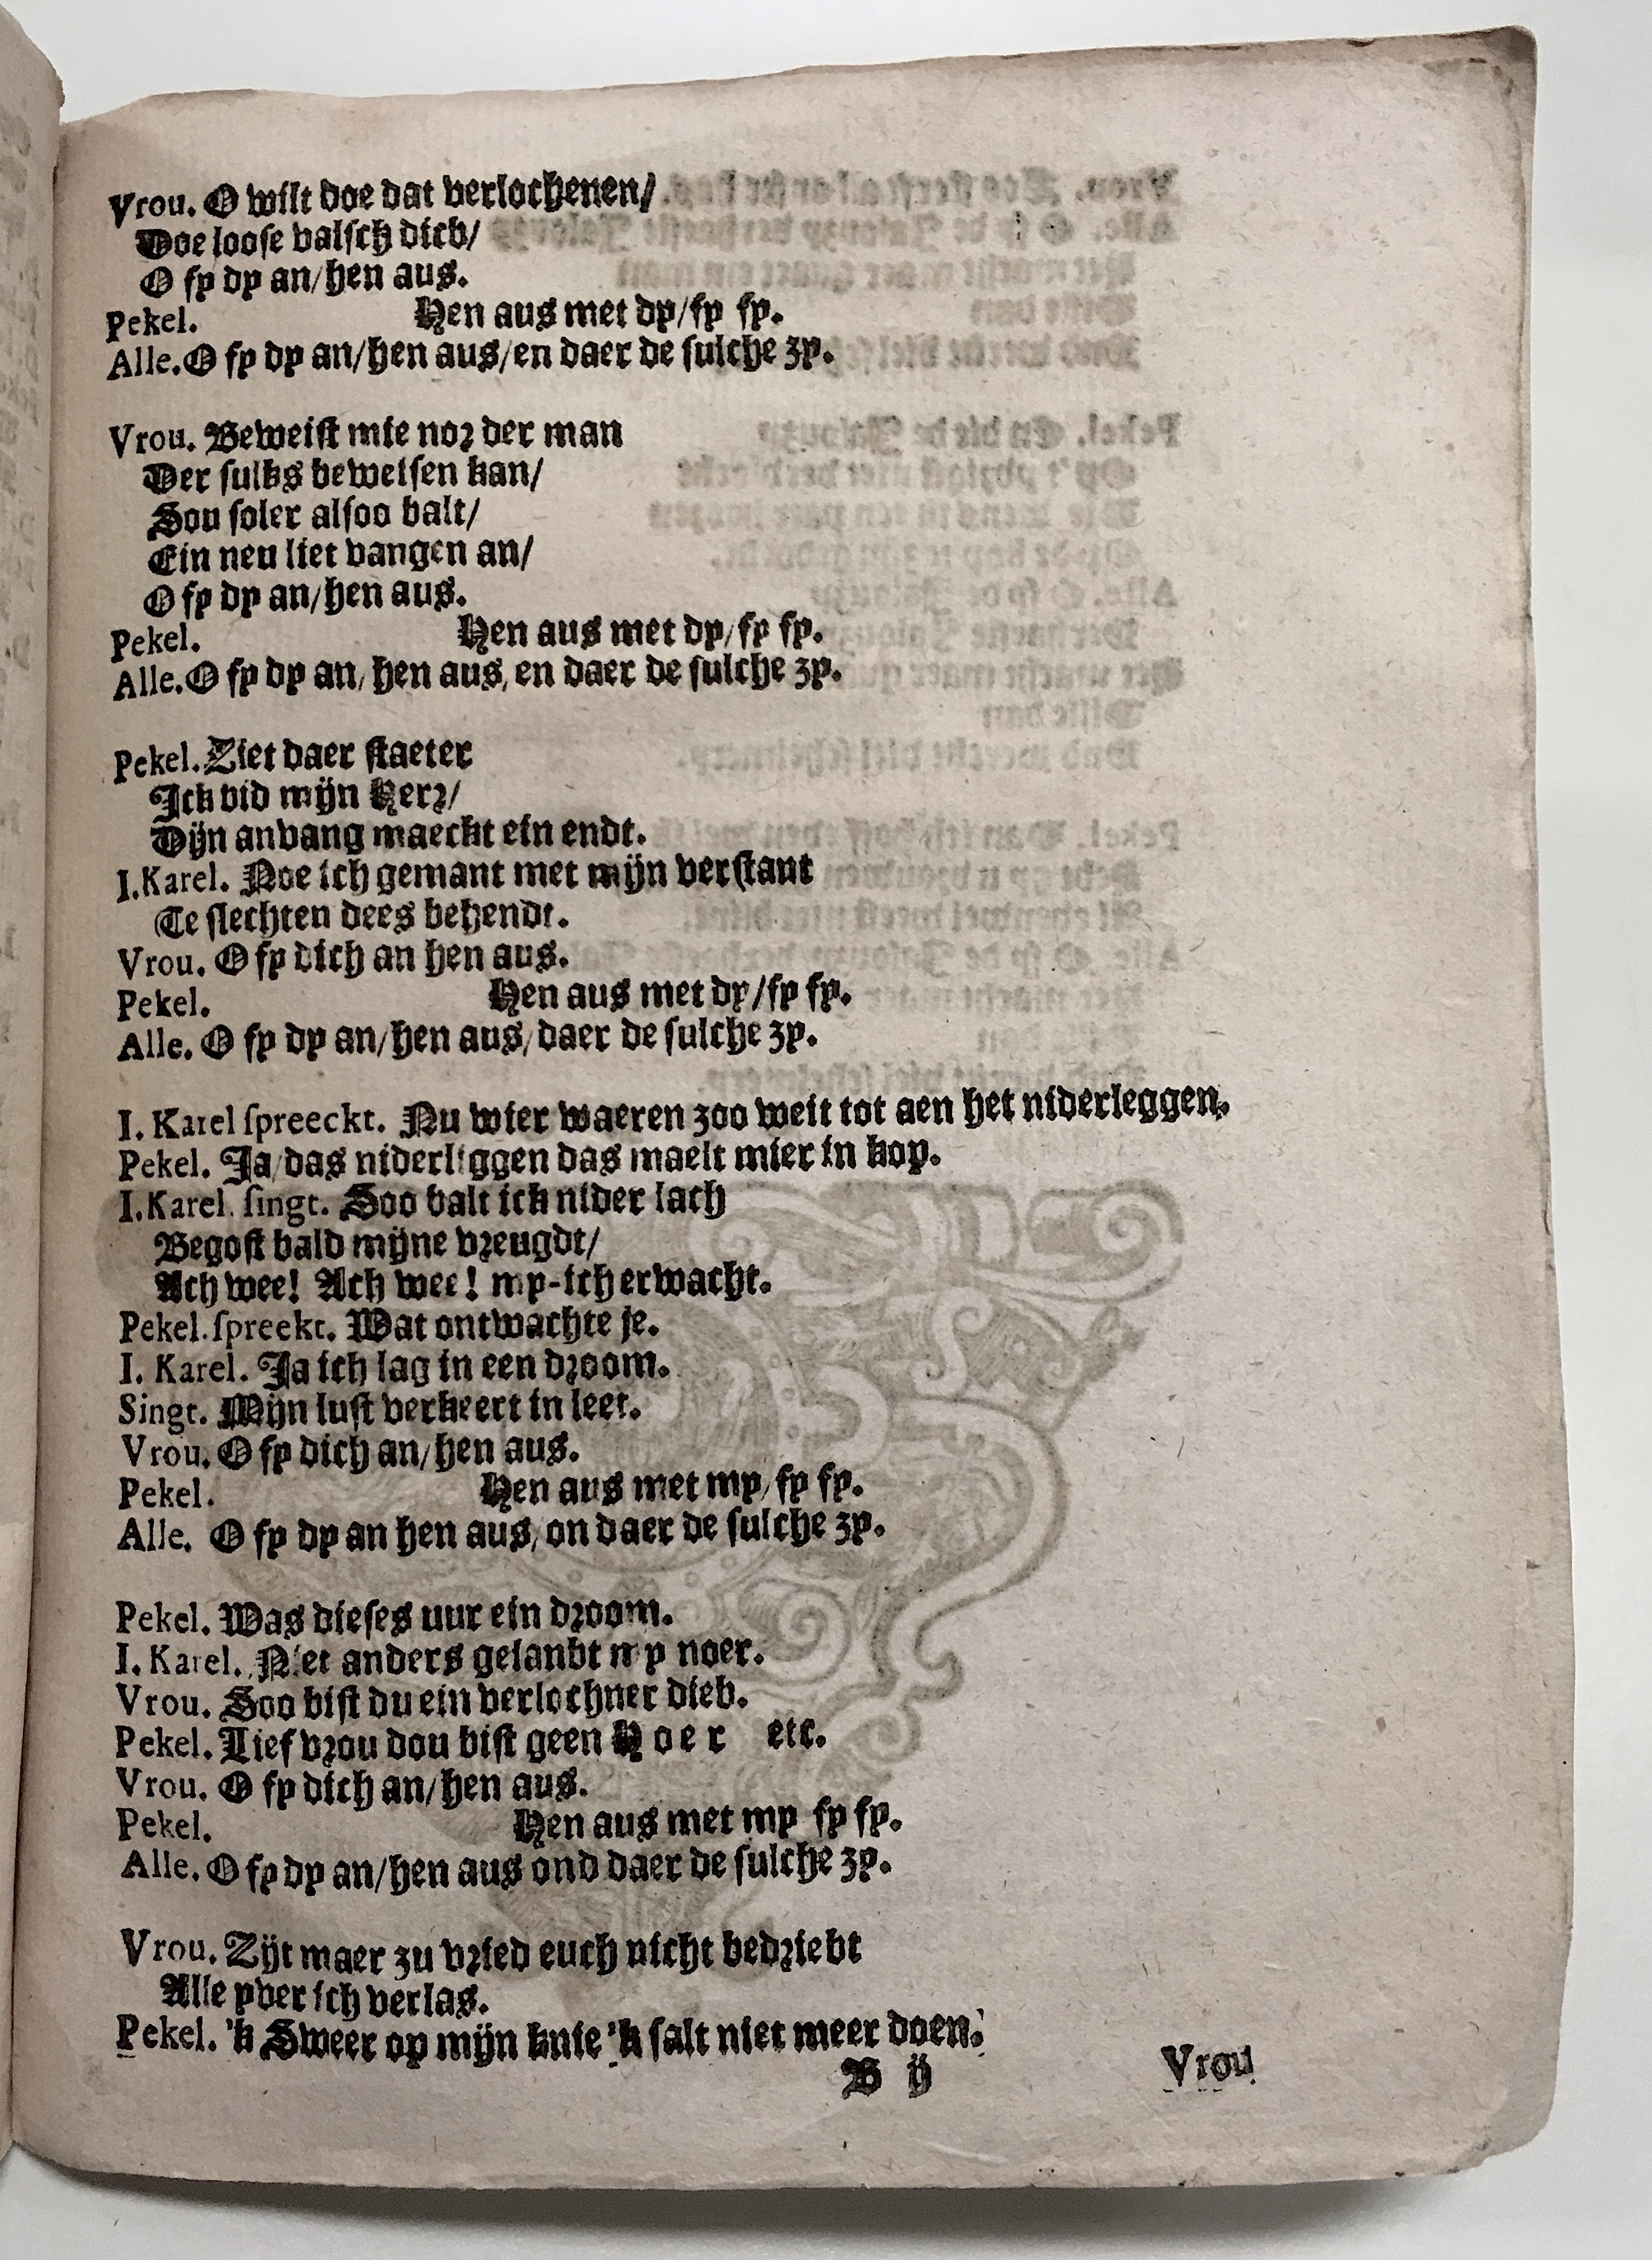 Vrou. O wilt doe dat verlochenen/
Doe loose valsch dieb/
O fy dy an/hen aus.
Pekel. Hen aus met dy/fy fy.
Alle. O fy dy an/hen aus/en daer de sulche zy.
Vrou. Beweist mie nor der man
Der sulks beweisen kan/
Sou soler alsoo balt/
Ein neu liet vangen an/
O fy dy an/hen aus.
Pekel. Hen aus met dy/fy fy.
Alle. O fy dy an/hen aus/en daer de sulche zy.
Pekel. Ziet daer staeter
Ick bid mijn Herr/
Dijn anvang maeckt ein endt.
I. Karel. Noe ich gemant met mijn verstant
Te slechten dees behendt.
Vrou. O fy dich an hen aus.
Pekel. Hen aus met dy/fy fy.
Alle. O fy dy an/hen aus/daer de sulche zy.
I. Karel spreeckt. Nu wier waeren zoo weit tot aen het niderleggen.
Pekel. Ja/das niderliggen das maelt mier in kop.
I. Karel singt. Soo balt ick nider lach
Begost bald mijne vreugdt/
Ach wee! Ach wee! my-ich erwacht.
Pekel. spreekt. Wat ontwachte je.
I. Karel. Ja ich lag in een droom.
Singt. Mijn lust verkeert in leet.
Vrou. O fy dich an/hen aus.
Pekel. Hen aus met my/fy fy.
Alle. O fy dy an hen aus/on daer de sulche zy.
Pekel. Was dieses uur ein droom.
I. Karel. Niet anders gelanbt my noer.
Vrou. Soo bist du ein verlochner dieb.
Pekel. Lief vrou dou bist geen H o e r etc.
Vrou. O fy dich an/hen aus.
Pekel. Hen aus met my fy fy.
Alle. O fy dy an/hen aus ond daer de sulche zy.
Vrou. Zijt maer zu vried euch nicht bedriebt
Alle yver ich verlas.
Pekel. 'k Sweer op mijn knie 'k salt niet meer doen.
B ij Vrou